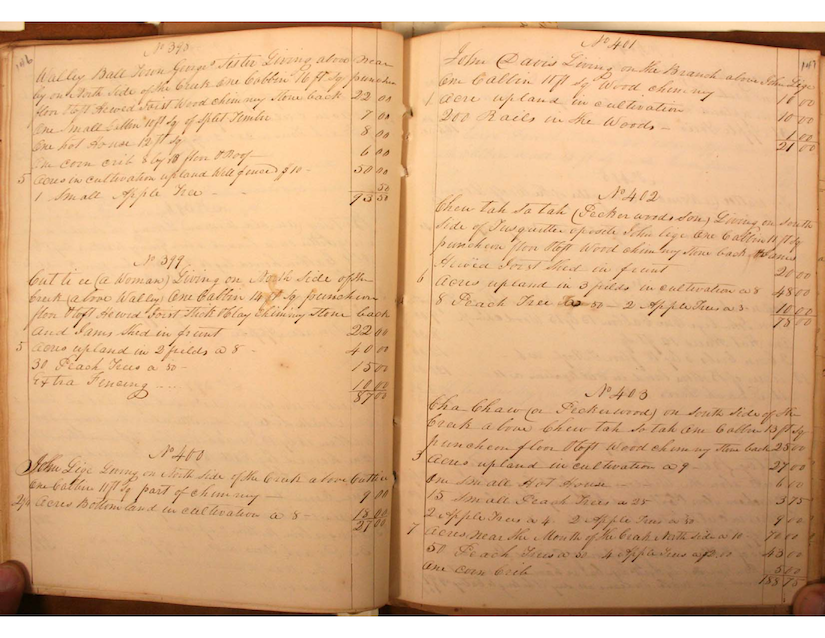 146
No 393
Wally Ball Town Georges Sister Living above Near
by on North Side of the Creek One Cabbin 16 ft Sq puncheon
floor & loft Hewed Joist Wood chimny Stone back 22 00
One Small Cabbin 10 ft Sq of Split Timber 7 00
One hot House 12 ft Sq 8 00
One corn crib 8 by floor & Roof 6 00
5 Acres in cultivation upland well fenced $10 - 50 00
1 Small Apple Tree - - 50
93 50
No 399
Cut ti e (a Woman) Living on North Side of the
Creek above Wally One Cabbin 14 ft Sq puncheon
floor & loft Hewed Joist Stick & Clay chimny Stone back
and Jams Shed in frunt 22 00
5 Acres upland in 2 fields a 8 - 40 00
30 Peach Trees a 50 - 15 00
Extra Fencing .... 10 00
87 00
No 400
John Gige Living on North Side of the Creek above Cuttie
One Cabbin 11 ft Sq part of chimny - 9 00
Acres Bottom land in cultivation a 8 - 18 00
27 00
147
No 401
John Davis Living on the Branch above John Gige
One Cabbin 11 ft Sq Wood chimny 10 00
1 Acre upland in cultivation 10 00
200 Rails in the Woods - 1 00
21 00
No 402
Chew tah So tah (Peckerwoods Son) Living on South
Side of Tusquittee oposite John Gige One Cabbin ft Sq
puncheon floor & loft Wood chimny Stone back & Jams
Hewed Joist Shed in frunt 20 00
6 Acres upland in 3 fields in cultivation a 8 48 00
8 Peach Tree 50 - 2 Apple Trees a 3 10 00
78 00
No 403
Cha Chaw (or Peckerwoods) on South Side of the
Creek above Chew tah So tah One Cabbin 15 ft Sq
puncheon floor & loft Wood chimny Stone back 25 00
3 Acres upland in cultivation a 9 - 27 00
One Small Hot House - 6 00
15 Small Peach Trees a 25 3 75
2 Apple Trees a 4 2 Apple Trees a 50 9 00
7 Acres Near the Mouth of the Creek North Side a 10 - 70 00
50 Peach Trees a 50 4 Apple Trees 43 00
One corn Crib 5 00
188 75